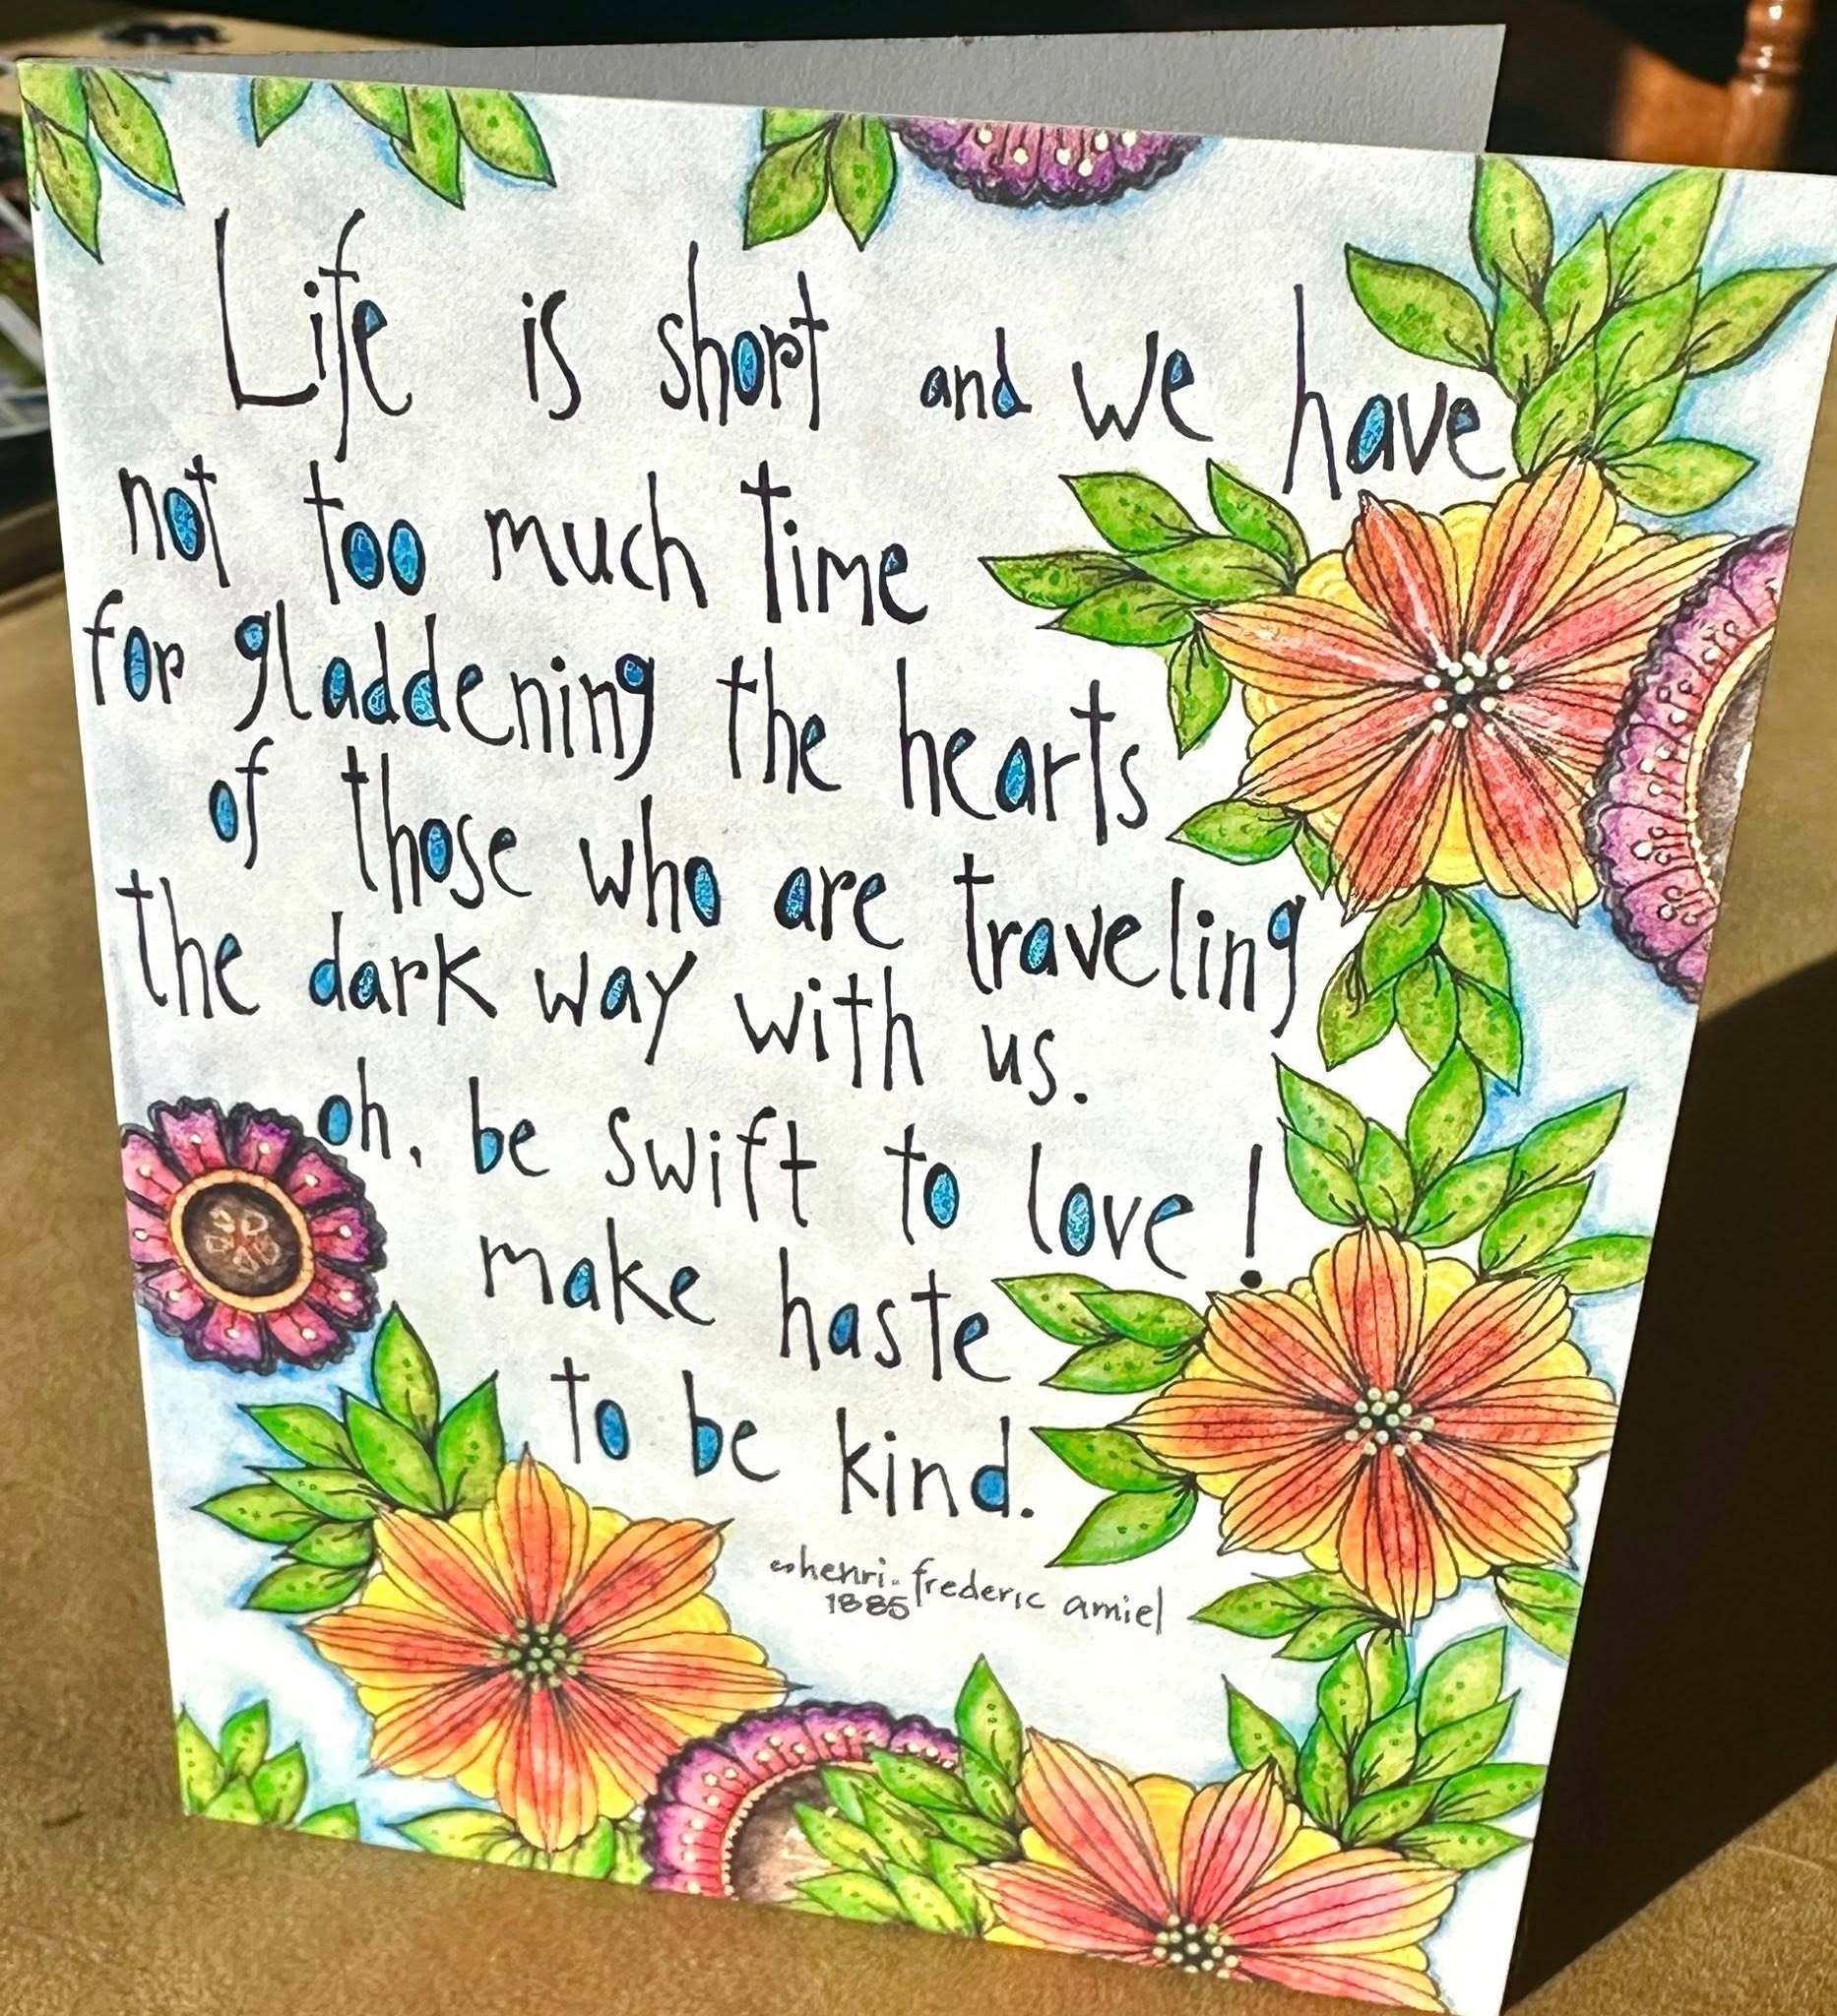 Life is short and we have
not too much time
for gladdening the hearts
of those who are traveling
the dark way with us.
oh, be swift to love!
make haste
to be kind.
henri-frederic amiel
1885